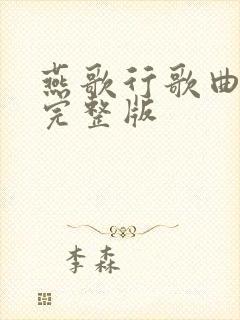 燕歌行歌曲
完整版
李森